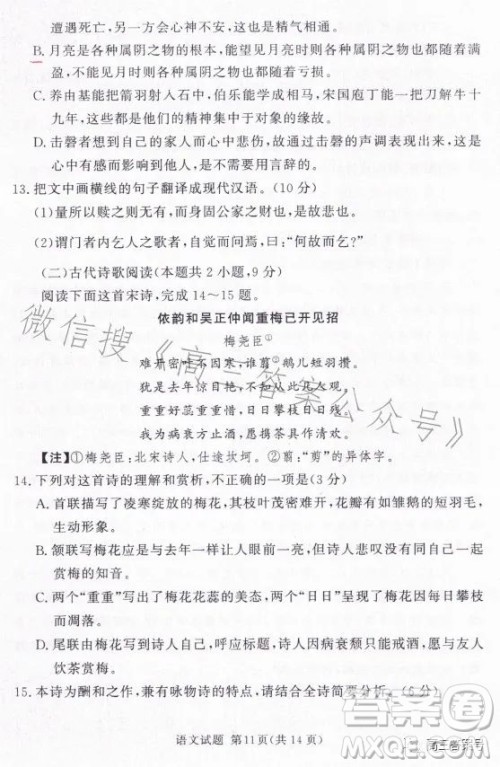 遭遇死亡，会心神不安，这也是精气相通。
B.月亮是各种属阴之物的根本，能望见月亮时则各种属阴之物都随着丰满充
盈，不能见月时则各种属阴之物都随着亏损。
C.养由基能把箭羽射入石中，伯乐能学成相马之术，宋国庖丁能一把刀解牛十
九年，这些都是他们的精神集中于对象的缘故。
D.击磬的人想到自己的家人而心中悲伤，故而击磬的声调表现出悲伤，钟子期
听懂了并不需要用言辞的。
13.把文中画横线的句子翻译成现代汉语。(10分)
(1)量所以赎之则无有，而身固公家之财也，是故悲也。
(2)谓门者内乞人之歌者，自觉而问焉，曰：“何故而乞？”
(二)古代诗歌阅读(本题共2小题，9分)
阅读下面这首宋诗，完成14～15题。
依韵和吴正仲闻重梅已开见招
梅尧臣①
难开密叶不因寒，谁剪②鹅儿短羽攒。
犹是去年惊目艳，不知从此几人看。
重重好蕊重重惜，日日攀枝日日残。
我为病衰方止酒，愿携茶具作清欢。
【注】①梅尧臣：北宋诗人，仕途坎坷。②翦：“剪”的异体字。
14.下列对这首诗的理解和赏析，不正确的一项是(3分)
A.首联描写了凌寒绽放的梅花，其枝叶茂密难开，花瓣有如雏鹅的短羽毛，
生动形象。
B.颔联写梅花应是与去年一样让人眼前一亮，但诗人悲叹不知有几人能一起
赏梅的知音。
C.两个“重重”写出了梅花花蕊的美丽丰富，两个“日日”呈现了梅花因攀枝
而凋落。
D.尾联由梅花写到诗人自己，呼应标题，诗人因病衰颓而戒酒，愿意与友人
饮茶赏梅。
15.本诗为酬和之作，兼有咏物诗的特点，请结合全诗简要分析。(6分)
语文试题 第11页(共14页)
微信搜《高三答案公众号》
答案圈